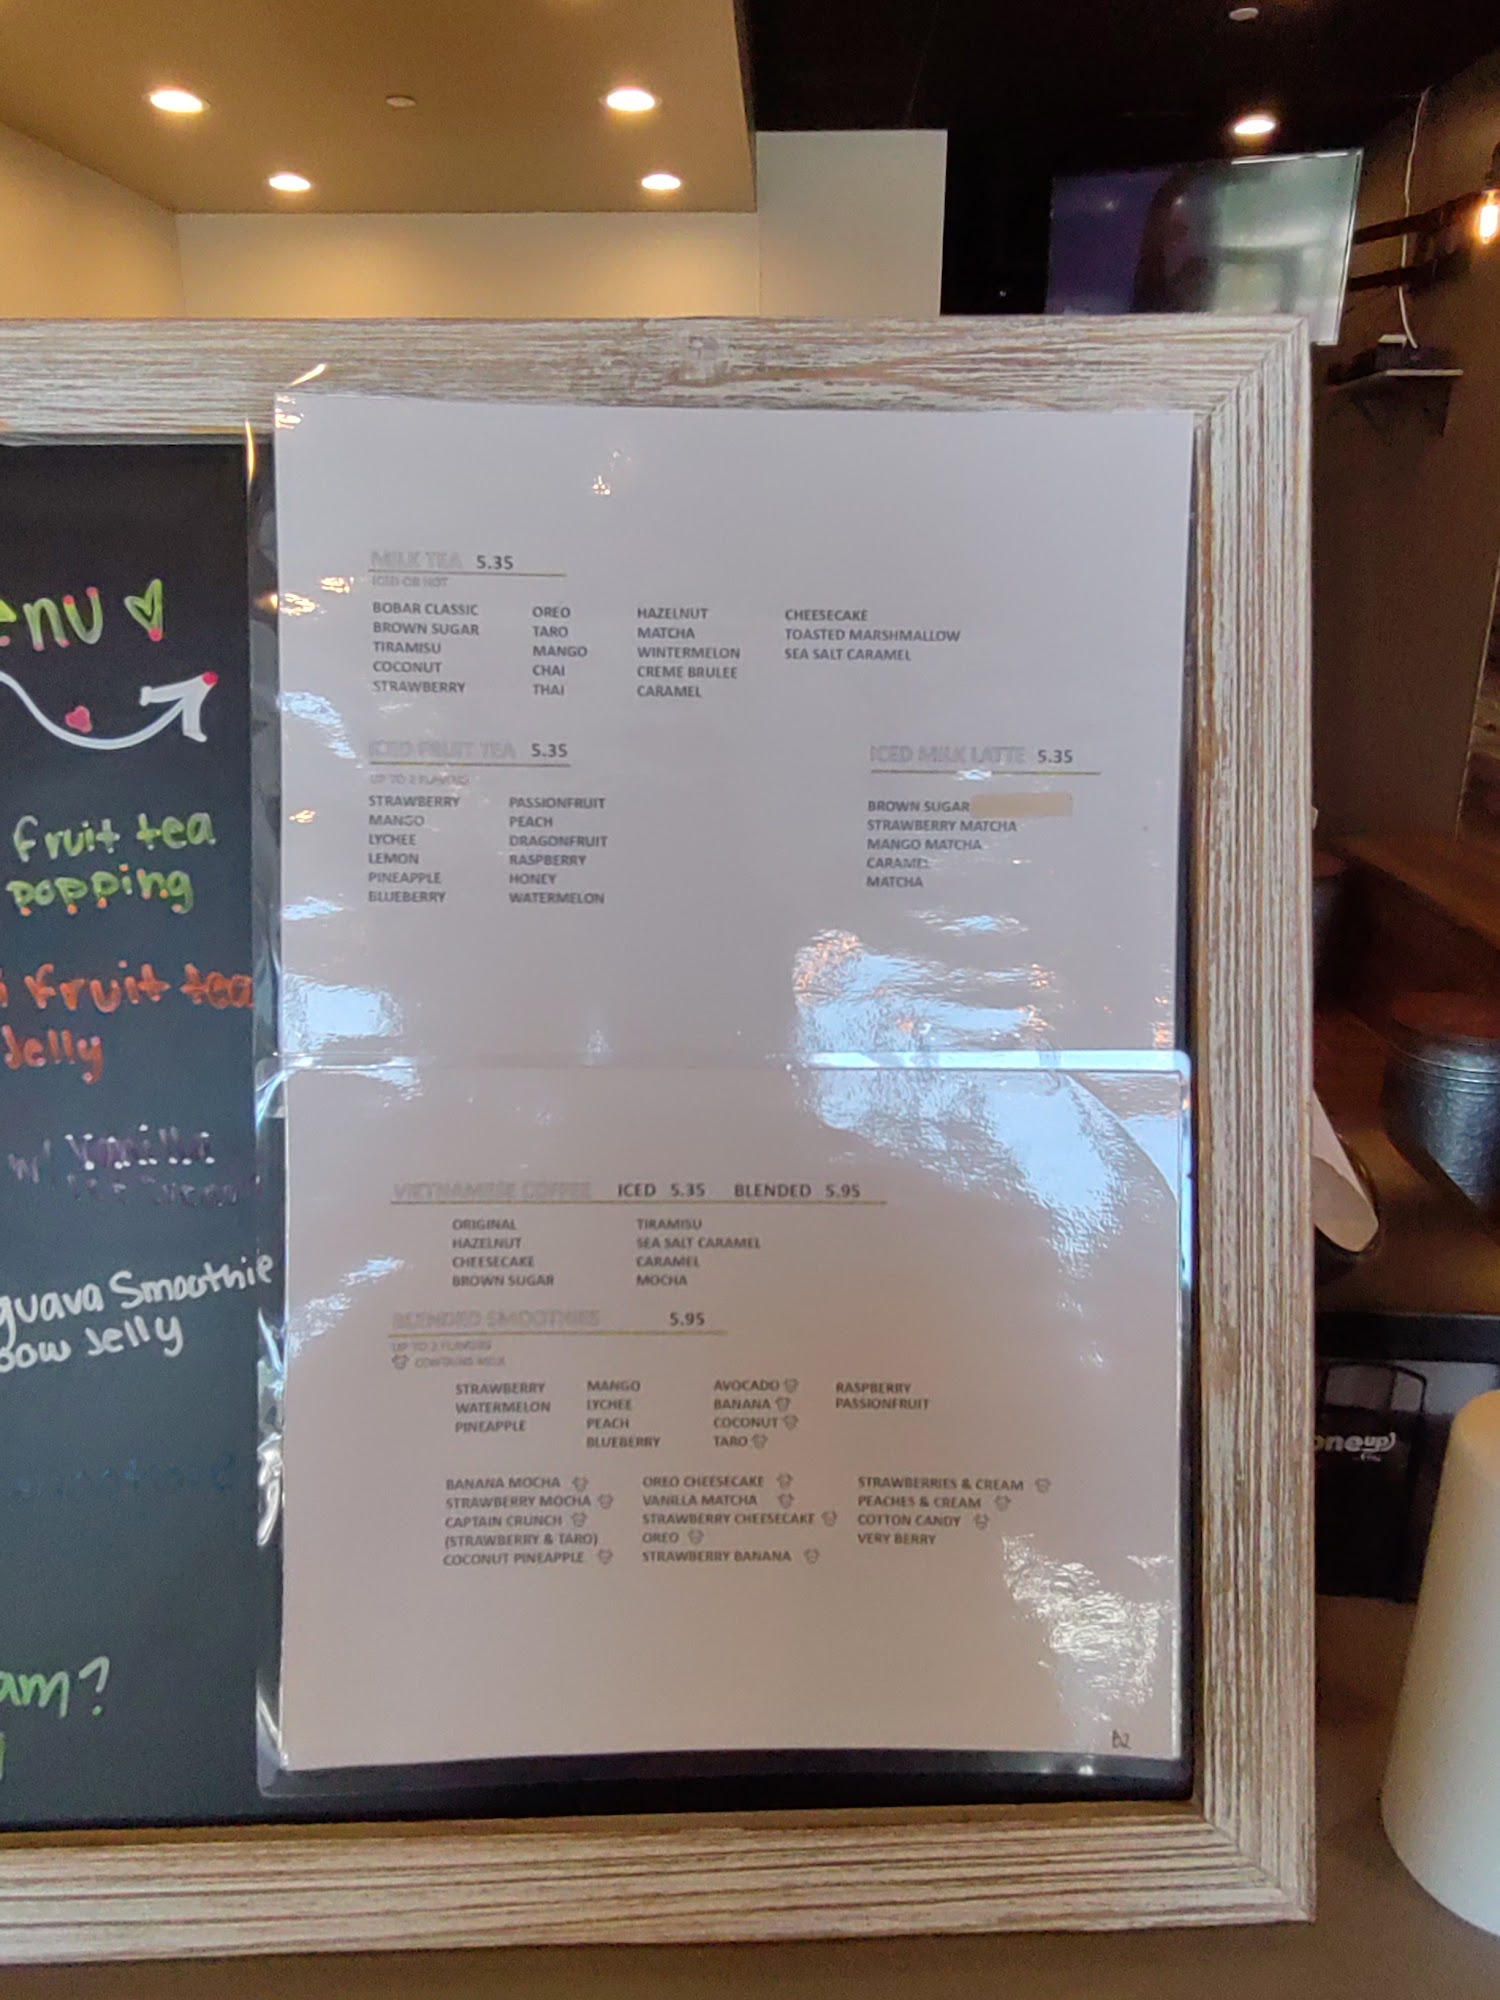 enu
fruit tea
popping
fruit tea
Jelly
w/ Vanilla
guava Smoothie
bow Jelly
am?
MILK TEA 5.35
ICED OR HOT
BOBAR CLASSIC OREO HAZELNUT CHEESECAKE
BROWN SUGAR TARO MATCHA TOASTED MARSHMALLOW
TIRAMISU MANGO WINTERMELON SEA SALT CARAMEL
COCONUT CHAI CREME BRULEE
STRAWBERRY THAI CARAMEL
ICED FRUIT TEA 5.35
UP TO 2 FLAVORS
STRAWBERRY PASSIONFRUIT
MANGO PEACH
LYCHEE DRAGONFRUIT
LEMON RASPBERRY
PINEAPPLE HONEY
BLUEBERRY WATERMELON
ICED MILK LATTE 5.35
BROWN SUGAR
STRAWBERRY MATCHA
MANGO MATCHA
CARAMEL
MATCHA
VIETNAMESE COFFEE ICED 5.35 BLENDED 5.95
ORIGINAL TIRAMISU
HAZELNUT SEA SALT CARAMEL
CHEESECAKE CARAMEL
BROWN SUGAR MOCHA
BLENDED SMOOTHIES 5.95
UP TO 2 FLAVORS
CONTAINS MILK
STRAWBERRY MANGO AVOCADO RASPBERRY
WATERMELON LYCHEE BANANA PASSIONFRUIT
PINEAPPLE PEACH COCONUT
BLUEBERRY TARO
BANANA MOCHA OREO CHEESECAKE STRAWBERRIES & CREAM
STRAWBERRY MOCHA VANILLA MATCHA PEACHES & CREAM
CAPTAIN CRUNCH STRAWBERRY CHEESECAKE COTTON CANDY
(STRAWBERRY & TARO) OREO VERY BERRY
COCONUT PINEAPPLE STRAWBERRY BANANA
B2
oneup